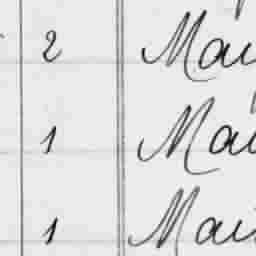 2 Mai
1 Mai
1 Mai